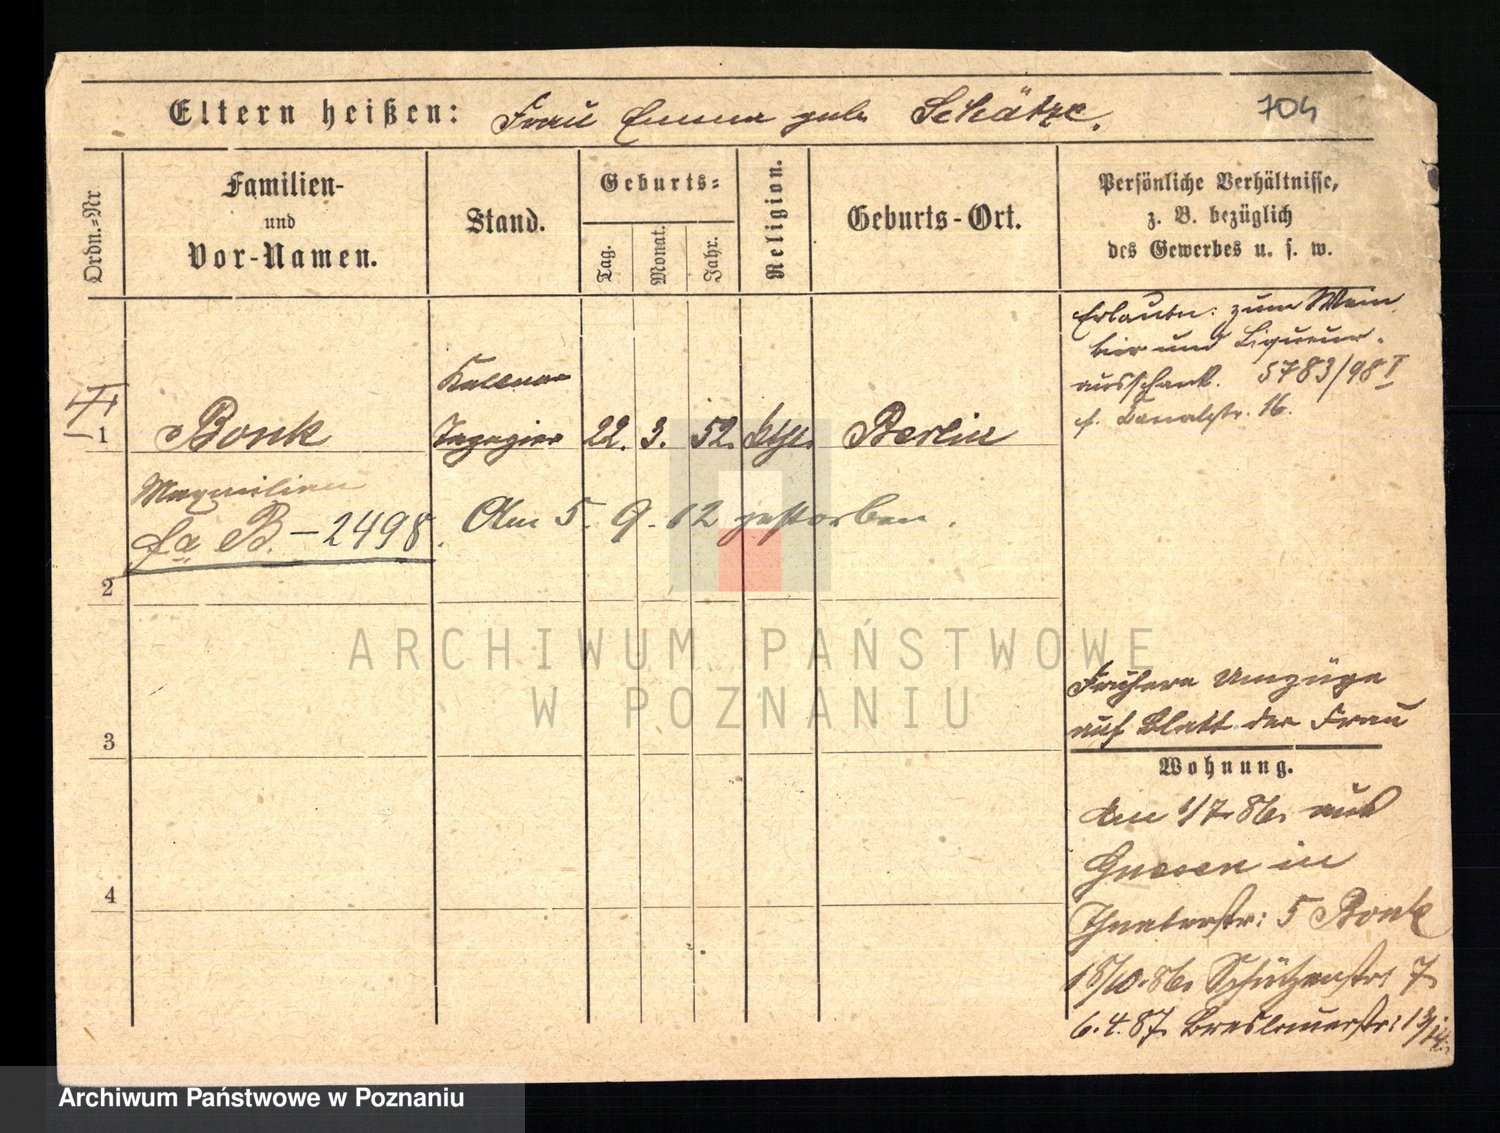 Eltern heißen: Frau Emma geb. Schätze.
704
Ordn.=Nr
Familien-
und
Vor-Namen.
Stand.
Geburts=
Tag.
Monat.
Jahr.
Religion.
Geburts-Ort.
Persönliche Verhältnisse,
z. B. bezüglich
des Gewerbes u. s. w.
Erlaubn: zum Wein
bier und Liqueur.
ausschank. 5783/98 I
f. Kanalstr. 16.
1
Bonk
Tapezier
22. 3. 52. kth.
Berlin
Maximilian
fa B. - 2498.
Am 5. 9. 12 gestorben.
2
3
4
Frühere Umzüge
auf Blatt der Frau
Wohnung.
Am 1/7. 86. aus
Gnesen in
Theaterstr: 5 Bonk
15/10. 86. Schützenstr: 7
6. 4. 87. Breslauerstr: 13/14.
ARCHIWUM PAŃSTWOWE
W POZNANIU
Archiwum Państwowe w Poznaniu